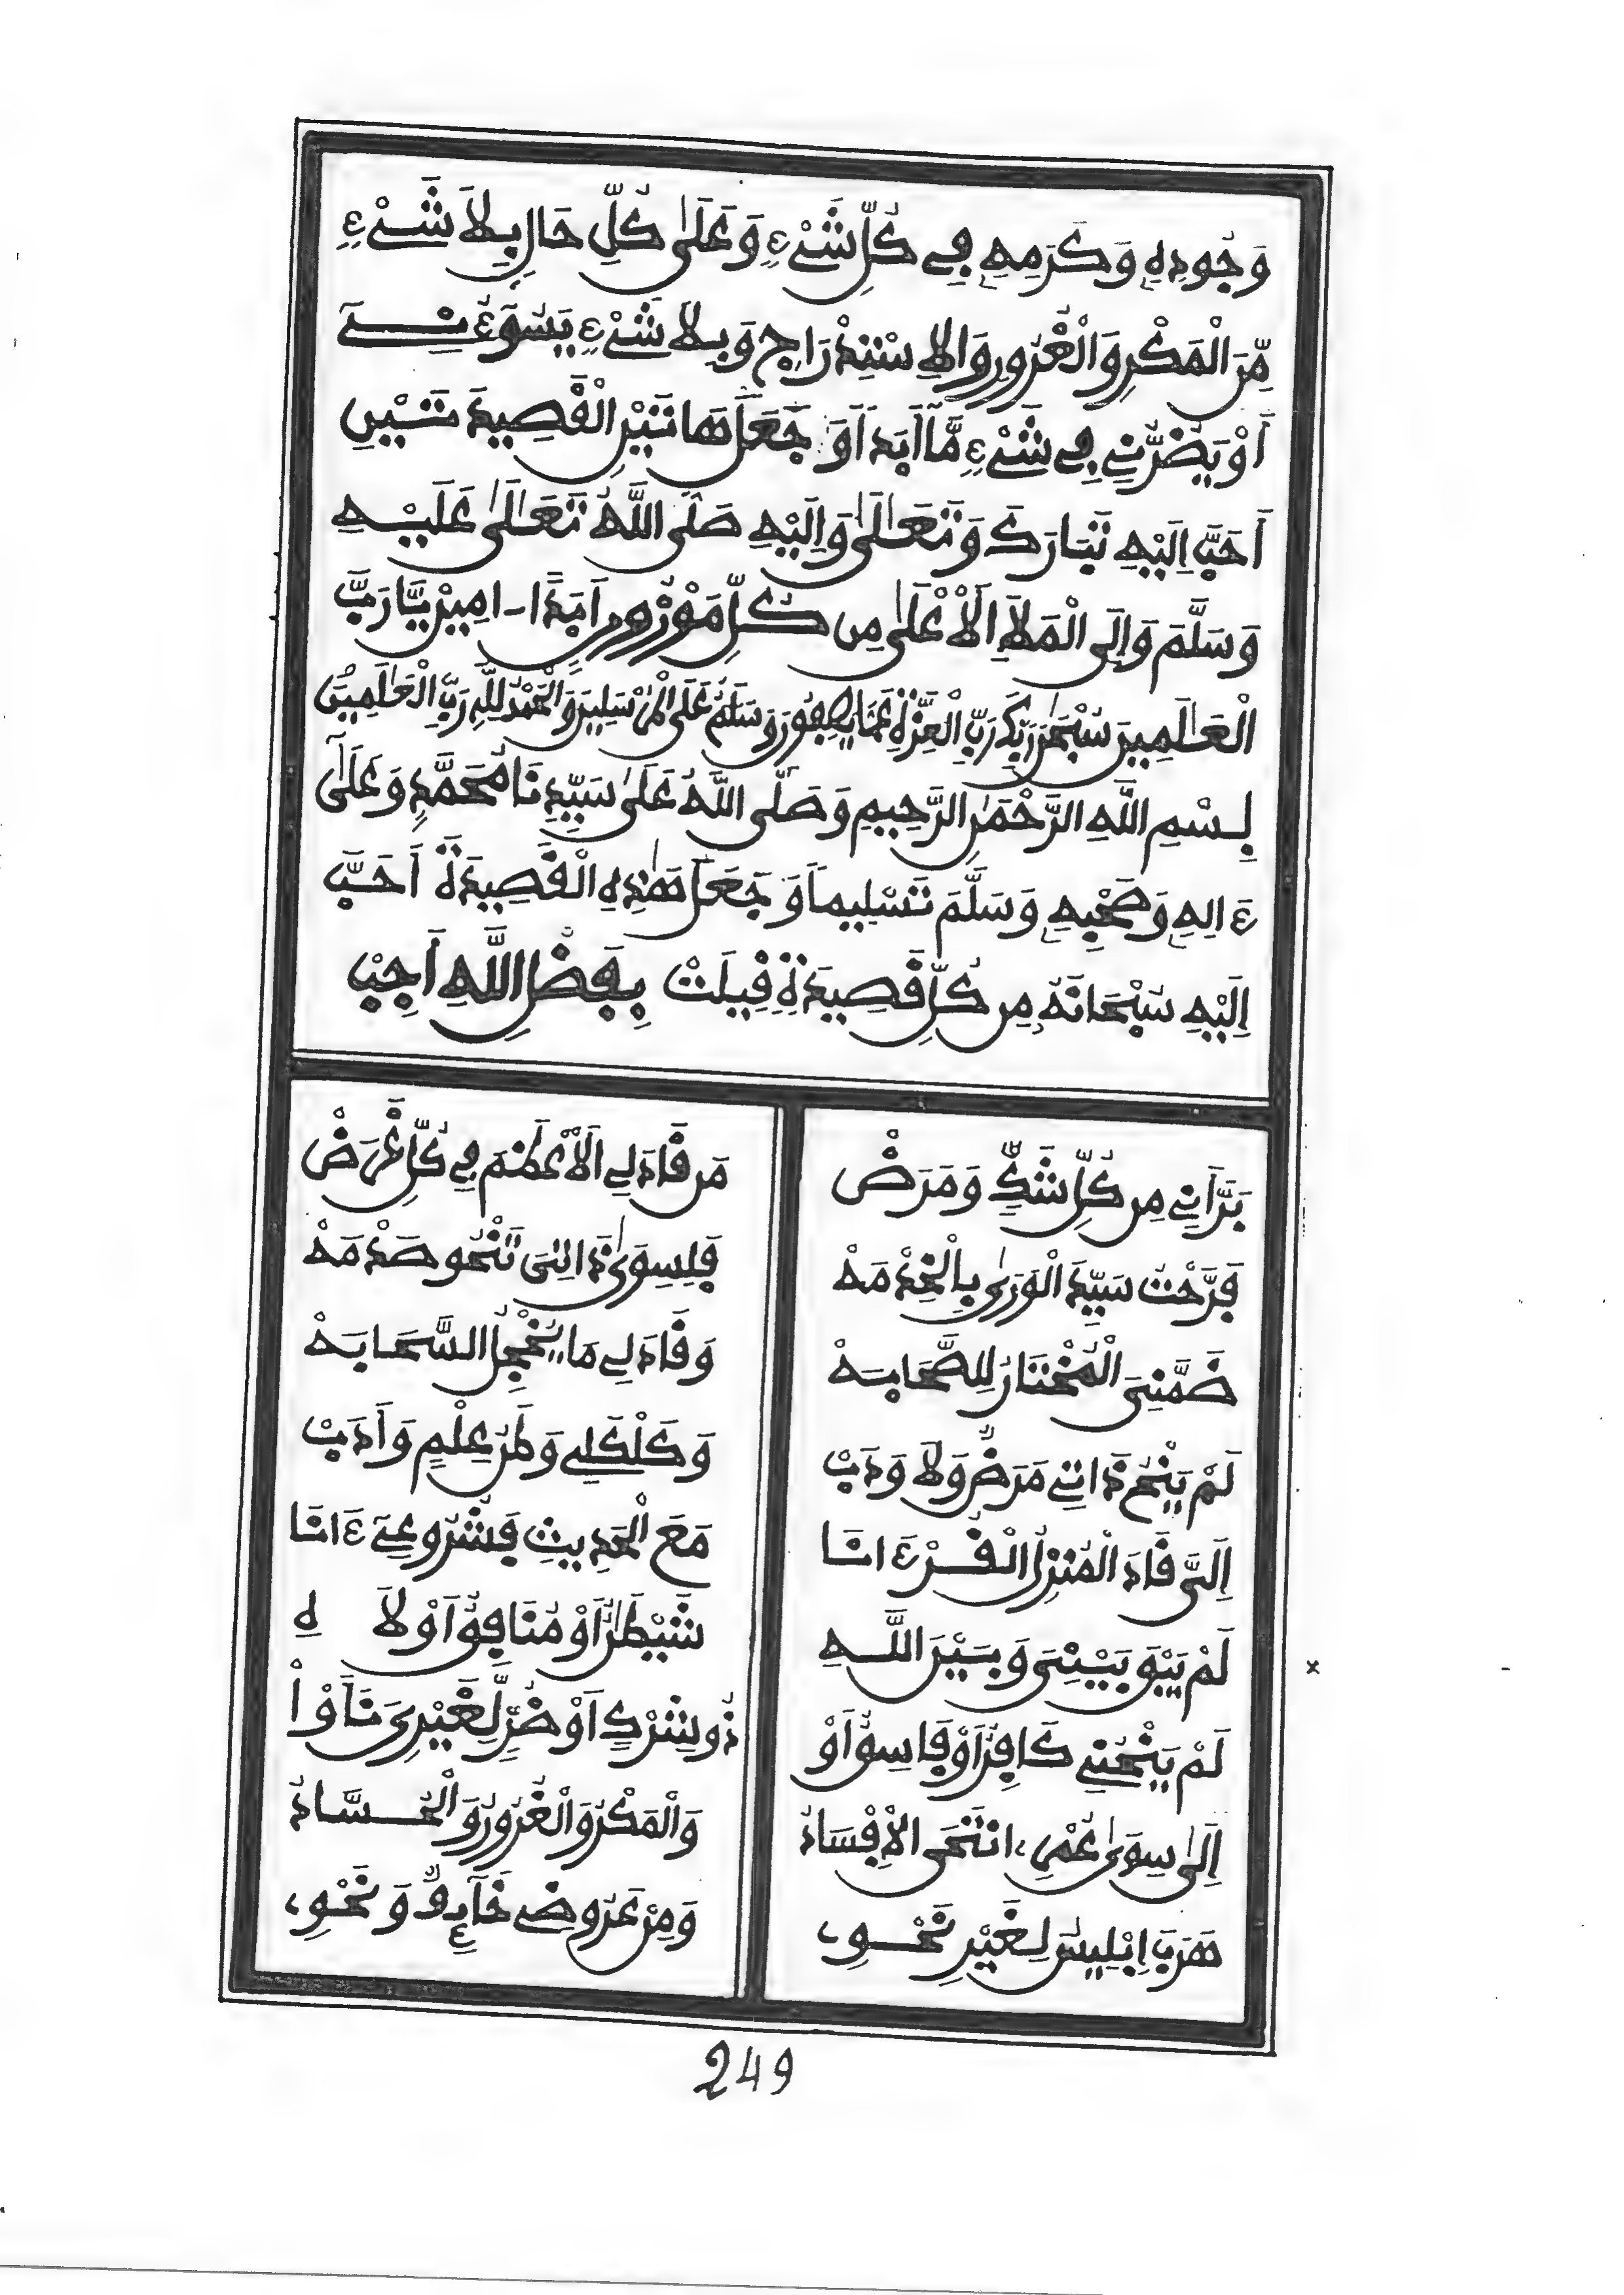 وَجُودِهِ وَكَرَمِهِ فِي كُلِّ شَيْءٍ وَعَلَىٰ كُلِّ حَالٍ بِلَا شَيْءٍ
مِّنَ الْمَكْرِ وَالْغُرُورِ وَالِاسْتِدْرَاجِ وَبِلَا شَيْءٍ يَسُوءُنِي
أَوْ يَضُرُّنِي فِي شَيْءٍ مَّا أَبَدًا وَجَعَلَ هَاتَيْنِ الْقَصِيدَتَيْنِ
أَحَبَّ إِلَيْهِ تَبَارَكَ وَتَعَالَىٰ وَإِلَيْهِ صَلَّى اللَّهُ تَعَالَىٰ عَلَيْهِ
وَسَلَّمَ وَإِلَى الْمَلَإِ الْأَعْلَىٰ مِن كُلِّ مَوْزُونٍ أَبَدًا ـ امِينَ يَا رَبَّ
الْعَالَمِينَ سُبْحَانَ رَبِّكَ رَبِّ الْعِزَّةِ عَمَّا يَصِفُونَ وَسَلَامٌ عَلَى الْمُرْسَلِينَ وَالْحَمْدُ لِلَّهِ رَبِّ الْعَالَمِينَ
بِسْمِ اللَّهِ الرَّحْمَٰنِ الرَّحِيمِ وَصَلَّى اللَّهُ عَلَىٰ سَيِّدِنَا مُحَمَّدٍ وَعَلَىٰ
ءَالِهِ وَصَحْبِهِ وَسَلَّمَ تَسْلِيمًا وَجَعَلَ هَٰذِهِ الْقَصِيدَةَ أَحَبَّ
إِلَيْهِ سُبْحَانَهُ مِن كُلِّ قَصِيدَةٍ قِيلَتْ بِفَضْلِ اللَّهِ أُجِبْ
بَرَّأَنِي مِن كُلِّ شَكٍّ وَمَرَضْ مَن قَادَ لِي الْأَعْظَمَ فِي كُلِّ غَرَضْ
فَرَّحْتُ سَيِّدَ الْوَرَىٰ بِالْخِدْمَهْ فَلِسِوَىٰ ذَاتِيَ تَنْحُو صَدْمَهْ
ضَمَّنِيَ الْمُخْتَارُ لِلصَّحَابَهْ وَقَادَ لِي مَا يُخْجِلُ السَّحَابَهْ
لَمْ يَنْحُ ذَاتِي مَرَضٌ وَلَا وَدَبْ وَكَلْكَلِي وَطَنُ عِلْمٍ وَأَدَبْ
إِلَيَّ قَادَ الْمُنْزِلُ الْقُرْءَانَا مَعَ الْحَدِيثِ فَشُرُوعِي ءَانَا
لَمْ يَبْقَ بَيْنِيَ وَبَيْنَ اللَّهِ شَيْطَانٌ أَوْ مُنَافِقٌ أَوْ لَاهِ
لَمْ يَنْحُنِي كَافِرٌ أَوْ فَاسِقٌ أَوْ ذُو شِرْكٍ أَوْ ضُرٍّ لِغَيْرِيَ نَأَوْا
إِلَىٰ سِوَىٰ عُمْرِي انْتَحَى الْإِفْسَادُ وَالْمَكْرُ وَالْغُرُورُ وَالْحُسَّادُ
هَرَبَ إِبْلِيسُ لِغَيْرِ نَحْوِي وَمِنْ عَرُوضِي خَائِفٌ وَنَحْوِي
249